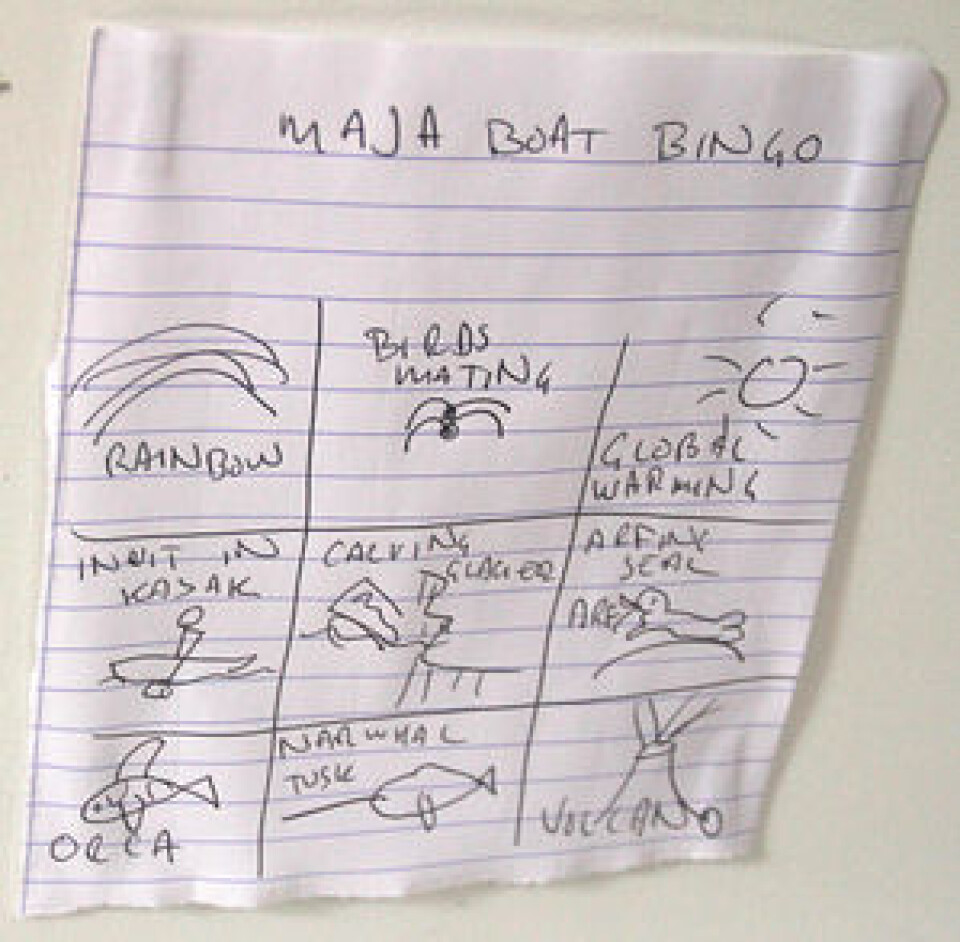 MAJA BOAT BINGO
RAINBOW
BIRDS
MATING
GLOBAL
WARMING
INUIT IN
KAJAK
CALVING
GLACIER
ARFING
SEAL
ARF
ORCA
NARWHAL
TUSK
VOLCANO